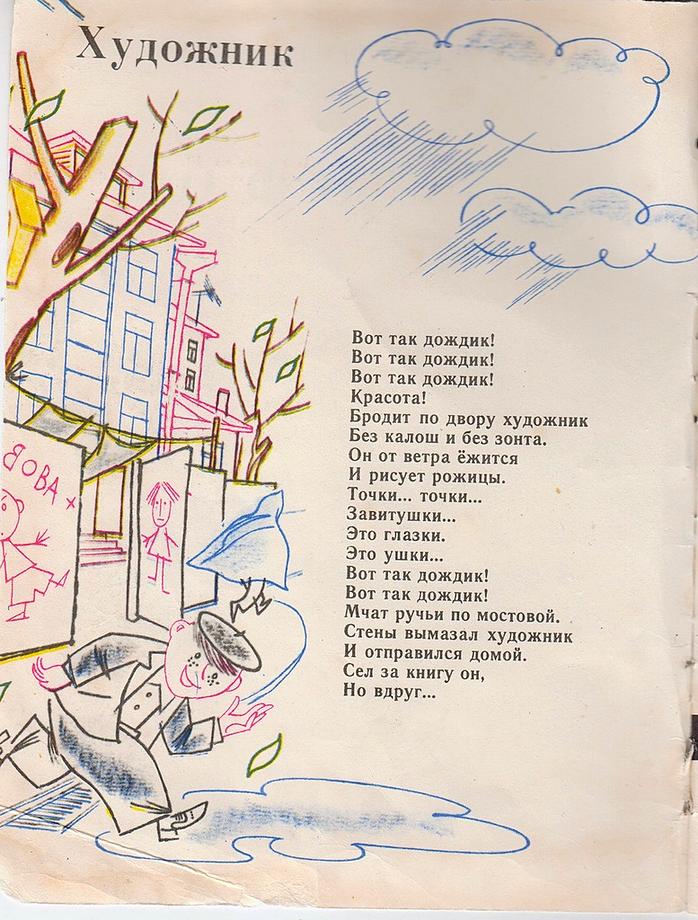 Художник
Вот так дождик!
Вот так дождик!
Вот так дождик!
Красота!
Бродит по двору художник
Без калош и без зонта.
Он от ветра ёжится
И рисует рожицы.
Точки... точки...
Завитушки...
Это глазки.
Это ушки...
Вот так дождик!
Вот так дождик!
Мчат ручьи по мостовой.
Стены вымазал художник
И отправился домой.
Сел за книгу он,
Но вдруг...
ВОВА +